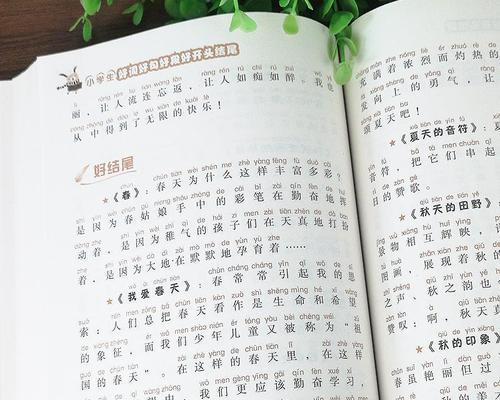 小学生好词好句好段好开头结尾
丽，让人流连忘返，让人如痴如醉。我也
从中得到了无限的快乐！
好结尾
★《春》：春天为什么这样丰富多彩？
是因为春姑娘手中的彩笔在勤奋地挥
动着，是因为稚气的孩子们在天真地打扮
着，是因为大地在默默地孕育着……
★《我爱春天》：春常常引起我的思
索：人们总把春天看作是生命和希望
的象征，而我们少年儿童又被称为“祖
国的春天”。在这样的春天里，在这样
我们更应该勤奋学习，
充满着浓烈而灼热的
发向上的勇气，让
颂夏天吧！
★《夏天的音符》
音符，把它们串起
日的赞歌。
★《秋天的田野》
景物相互辉映，
图画，展现着秋的
之声、秋之韵也
赞叹：啊，秋天真
★《秋的印象》
春虽艳丽但过